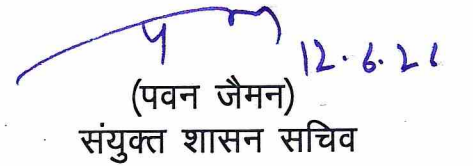 12.6.26
(पवन जैमन)
संयुक्त शासन सचिव